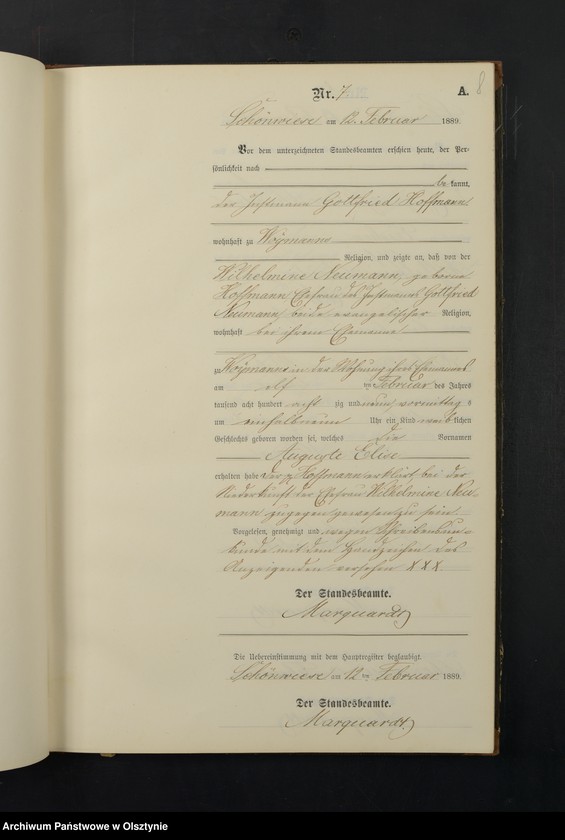 8
Nr. 7. A.
Schönwiese am 12. Februar 1889.
Vor dem unterzeichneten Standesbeamten erschien heute, der Per-
sönlichkeit nach
be kannt,
der Instmann Gottfried Hoffmann
wohnhaft zu Woymanns
Religion, und zeigte an, daß von der
Wilhelmine Neumann, geborne
Hoffmann Ehefrau des Instmanns Gottfried
Neumann, beide evangelischer Religion,
wohnhaft bei ihrem Ehemanne
zu Woymanns in der Wohnung ihres Ehemannes
am elf ten Februar des Jahres
tausend acht hundert acht zig und neun, vormittag s
um einhalbneun Uhr ein Kind weib lichen
Geschlechts geboren worden sei, welches die Vornamen
Auguste Elise
erhalten habe. Der Hoffmann erklärt, bei der
Niederkunft der Ehefrau Wilhelmine Neu-
mann zugegen gewesen zu sein
Vorgelesen, genehmigt und wegen Schreibensun-
kunde mit dem Handzeichen des
Anzeigenden versehen XXX
Der Standesbeamte.
Marquardt
Die Uebereinstimmung mit dem Hauptregister beglaubigt.
Schönwiese am 12 ten Februar 1889.
Der Standesbeamte.
Marquardt.
Archiwum Państwowe w Olsztynie